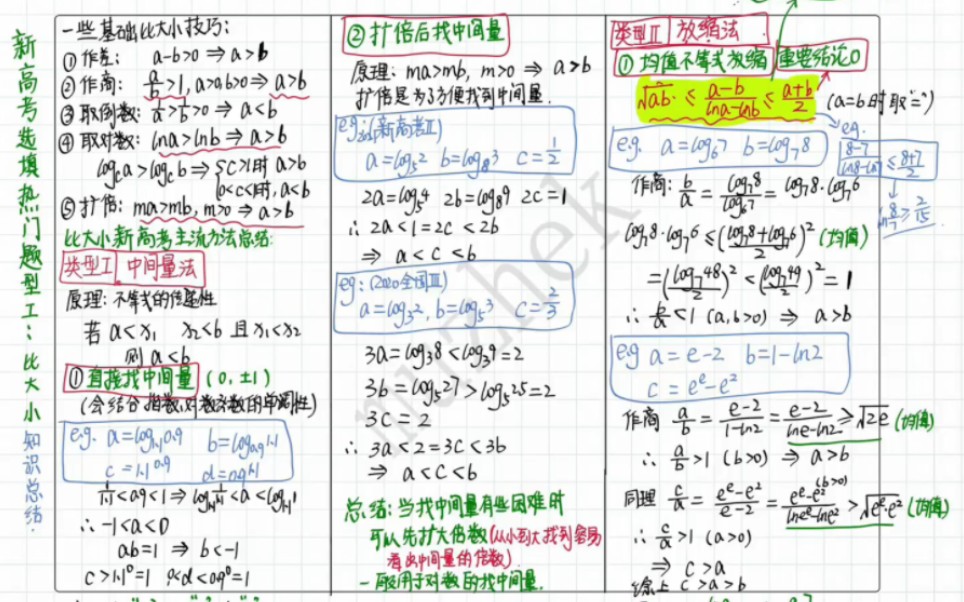 新高考选填热门题型工：比大小知识总结.
一些基础比大小技巧：
① 作差： a-b>0 ⇒ a>b
② 作商： a/b>1, a>0,b>0 ⇒ a>b
③ 取倒数： 1/a>1/b>0 ⇒ a<b
④ 取对数： lna>lnb ⇒ a>b
log_c a>log_c b ⇒ {c>1时 a>b
0<c<1时, a<b
⑤ 扩倍： ma>mb, m>0 ⇒ a>b
比大小新高考主流方法总结:
类型I 中间量法
原理：不等式的传递性
若 a<x₁ x₂<b 且 x₁<x₂
则 a<b
① 直接找中间量 (0, ±1)
(会结合指数,对数函数的单调性)
e.g. a=log_1.1 0.9 b=log_0.9 1.1
c=1.1^0.9 d=0.9^1.1
1/1.1<0.9<1 ⇒ log_1.1 1/1.1<a<log_1.1 1
∴ -1<a<0
ab=1 ⇒ b<-1
c>1.1^0=1 0<d<0.9^0=1
② 扩倍后找中间量
原理：ma>mb, m>0 ⇒ a>b
扩倍是为了方便找到中间量.
e.g. (新高考II)
a=log_5 2 b=log_8 3 c=1/2
2a=log_5 4 2b=log_8 9 2c=1
∴ 2a<1=2c<2b
⇒ a<c<b
eg: (2020全国III)
a=log_3 2, b=log_5 3 c=2/3
3a=log_3 8<log_3 9=2
3b=log_5 27>log_5 25=2
3c=2
∴ 3a<2=3c<3b
⇒ a<c<b
总结：当找中间量有些困难时
可以先扩大倍数(从小到大找到容易
看出中间量的倍数).
一般用于对数的找中间量.
类型II 放缩法
① 均值不等式放缩 重要结论0
√ab ≤ (a-b)/(lna-lnb) ≤ (a+b)/2 (a=b时取"=")
e.g.
(8-7)/(ln8-ln7)≤(8+7)/2
ln 8/7 ≥ 2/15
e.g. a=log_6 7 b=log_7 8
作商: b/a = log_7 8/log_6 7 = log_7 8·log_7 6
log_7 8·log_7 6 ≤ ((log_7 8+log_7 6)/2)² (均值)
=(log_7 48/2)² < (log_7 49/2)² = 1
∴ b/a<1 (a,b>0) ⇒ a>b
e.g a=e-2 b=1-ln2
c=e^e-e²
作商 a/b = (e-2)/(1-ln2) = (e-2)/(lne-ln2) ≥ √2e (均值)
∴ a/b>1 (b>0) ⇒ a>b
同理 c/a = (e^e-e²)/(e-2) = (e^e-e²)/(lne^e-lne²) > √e^e·e² (均值)
(b>0)
∴ c/a>1 (a>0)
⇒ c>a
综上 c>a>b